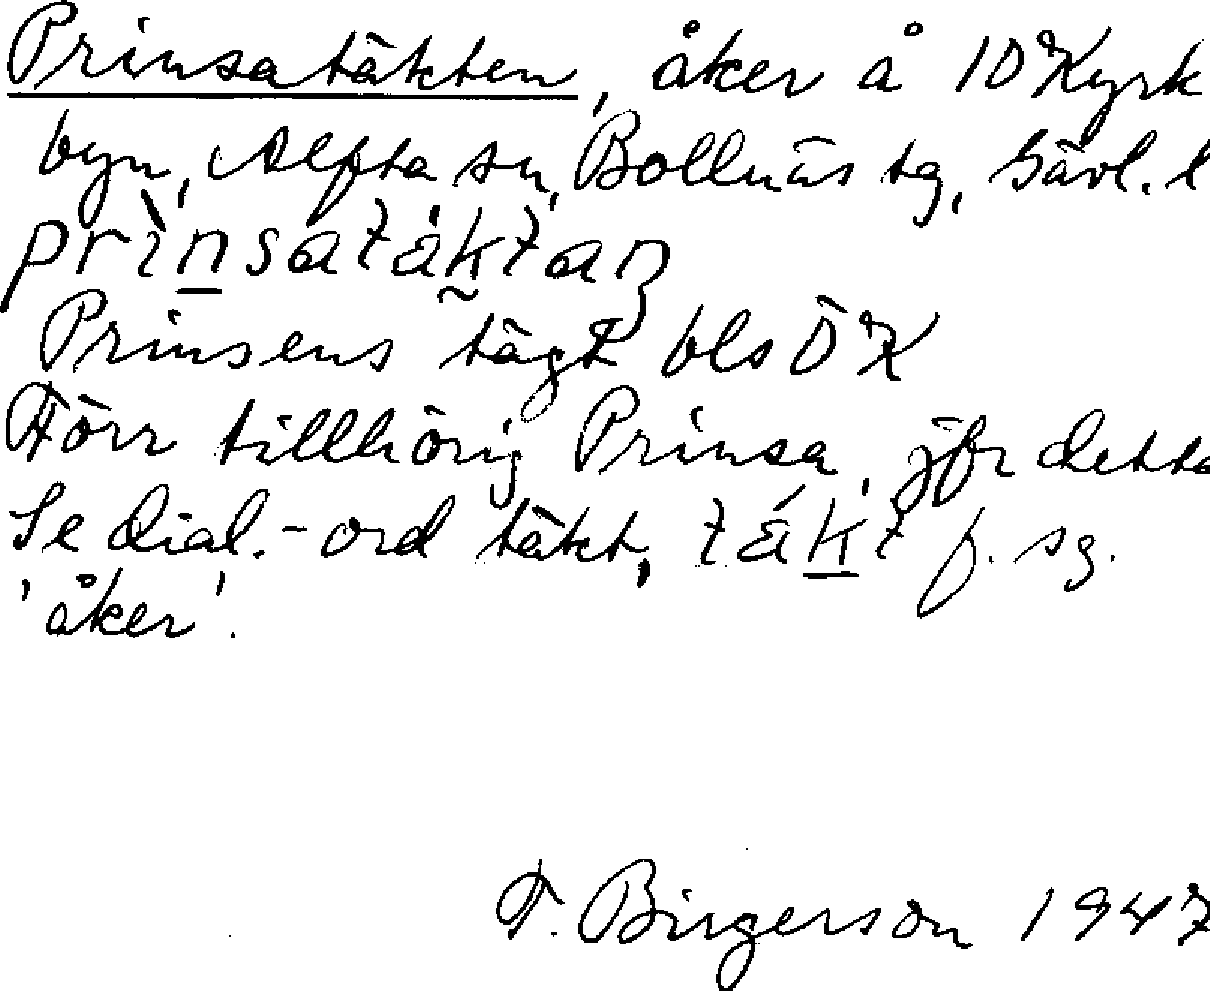 Prinsatäkten, åker å 10 Kyrk
byn, Alfta sn, Bollnäs tg, Gävl. l
prinsatäktan
Prinsens tägt bls ÖK
Förr tillhörig Prinsa, jfr detta
Se dial.-ord täkt, täkt f. sg.
'åker'.
F. Birgerson 1947